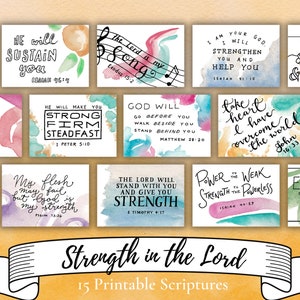 He will
SUSTAIN
you
ISAIAH 46:4
the Lord is my
Song
I AM YOUR GOD
I WILL
STRENGTHEN
YOU AND
HELP YOU
ISAIAH 41:10
HE WILL MAKE YOU
STRONG
FIRM
STEADFAST
1 PETER 5:10
GOD WILL
GO BEFORE YOU
WALK BESIDE YOU
STAND BEHIND YOU
MATTHEW 28:20
take
heart
I have
overcome
the world
John
16:33
My flesh
may fail
but God is
my strength
PSALM 73:26
THE LORD WILL
STAND WITH YOU
AND GIVE YOU
STRENGTH
2 TIMOTHY 4:17
POWER TO THE WEAK
STRENGTH TO THE POWERLESS
ISAIAH 40:29
Strength in the Lord
15 Printable Scriptures